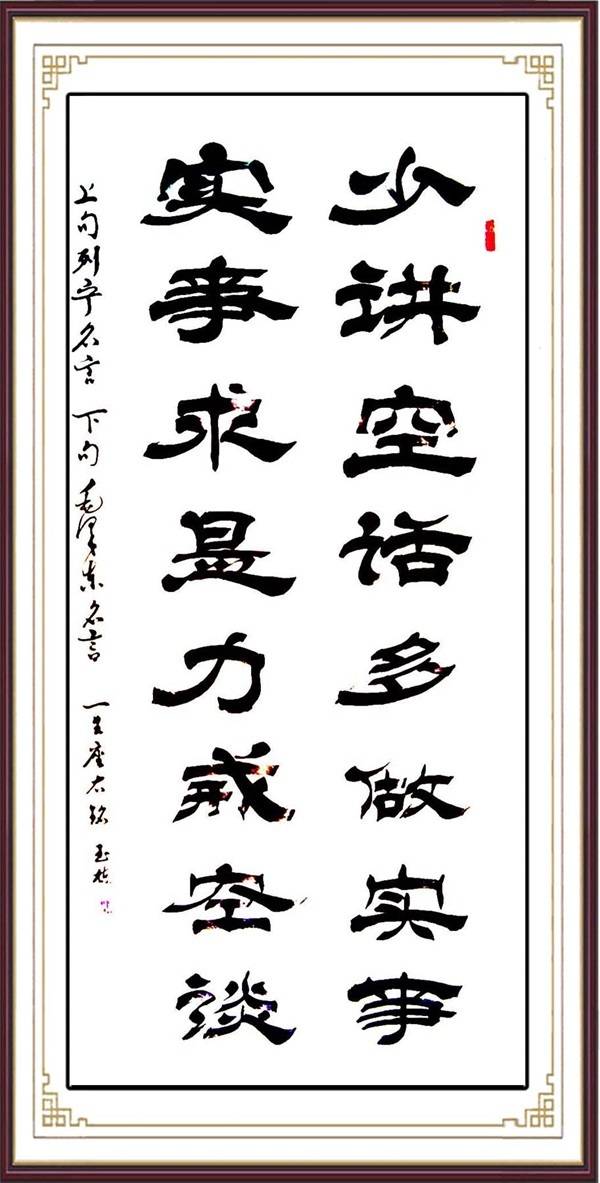 少讲空话多做实事
实事求是力戒空谈
上句列宁名言 下句毛泽东名言 一生座右铭 玉栋